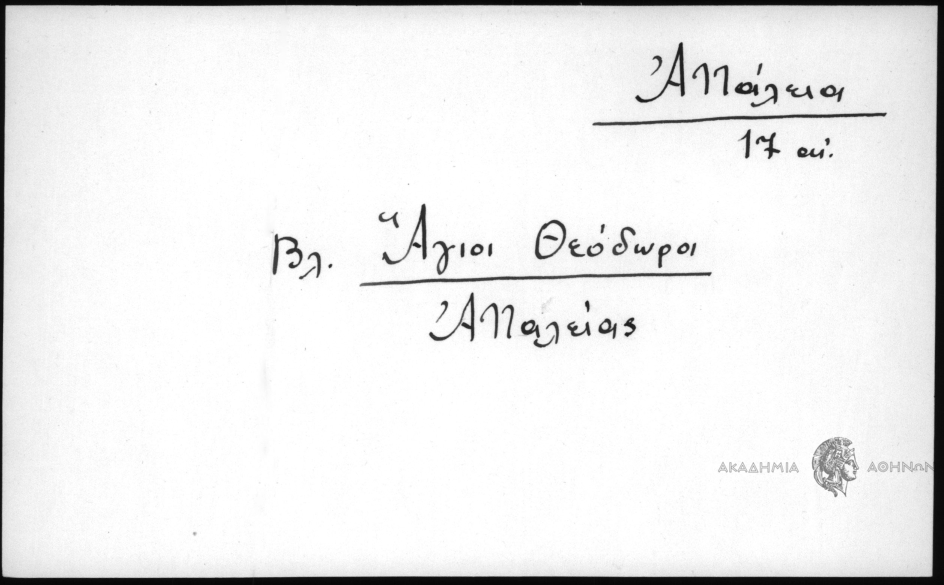 Ἀπάλεια
17 αἰ.
Βλ. Ἅγιοι Θεόδωροι
Ἀπαλείας
ΑΚΑΔΗΜΙΑ ΑΘΗΝΩΝ